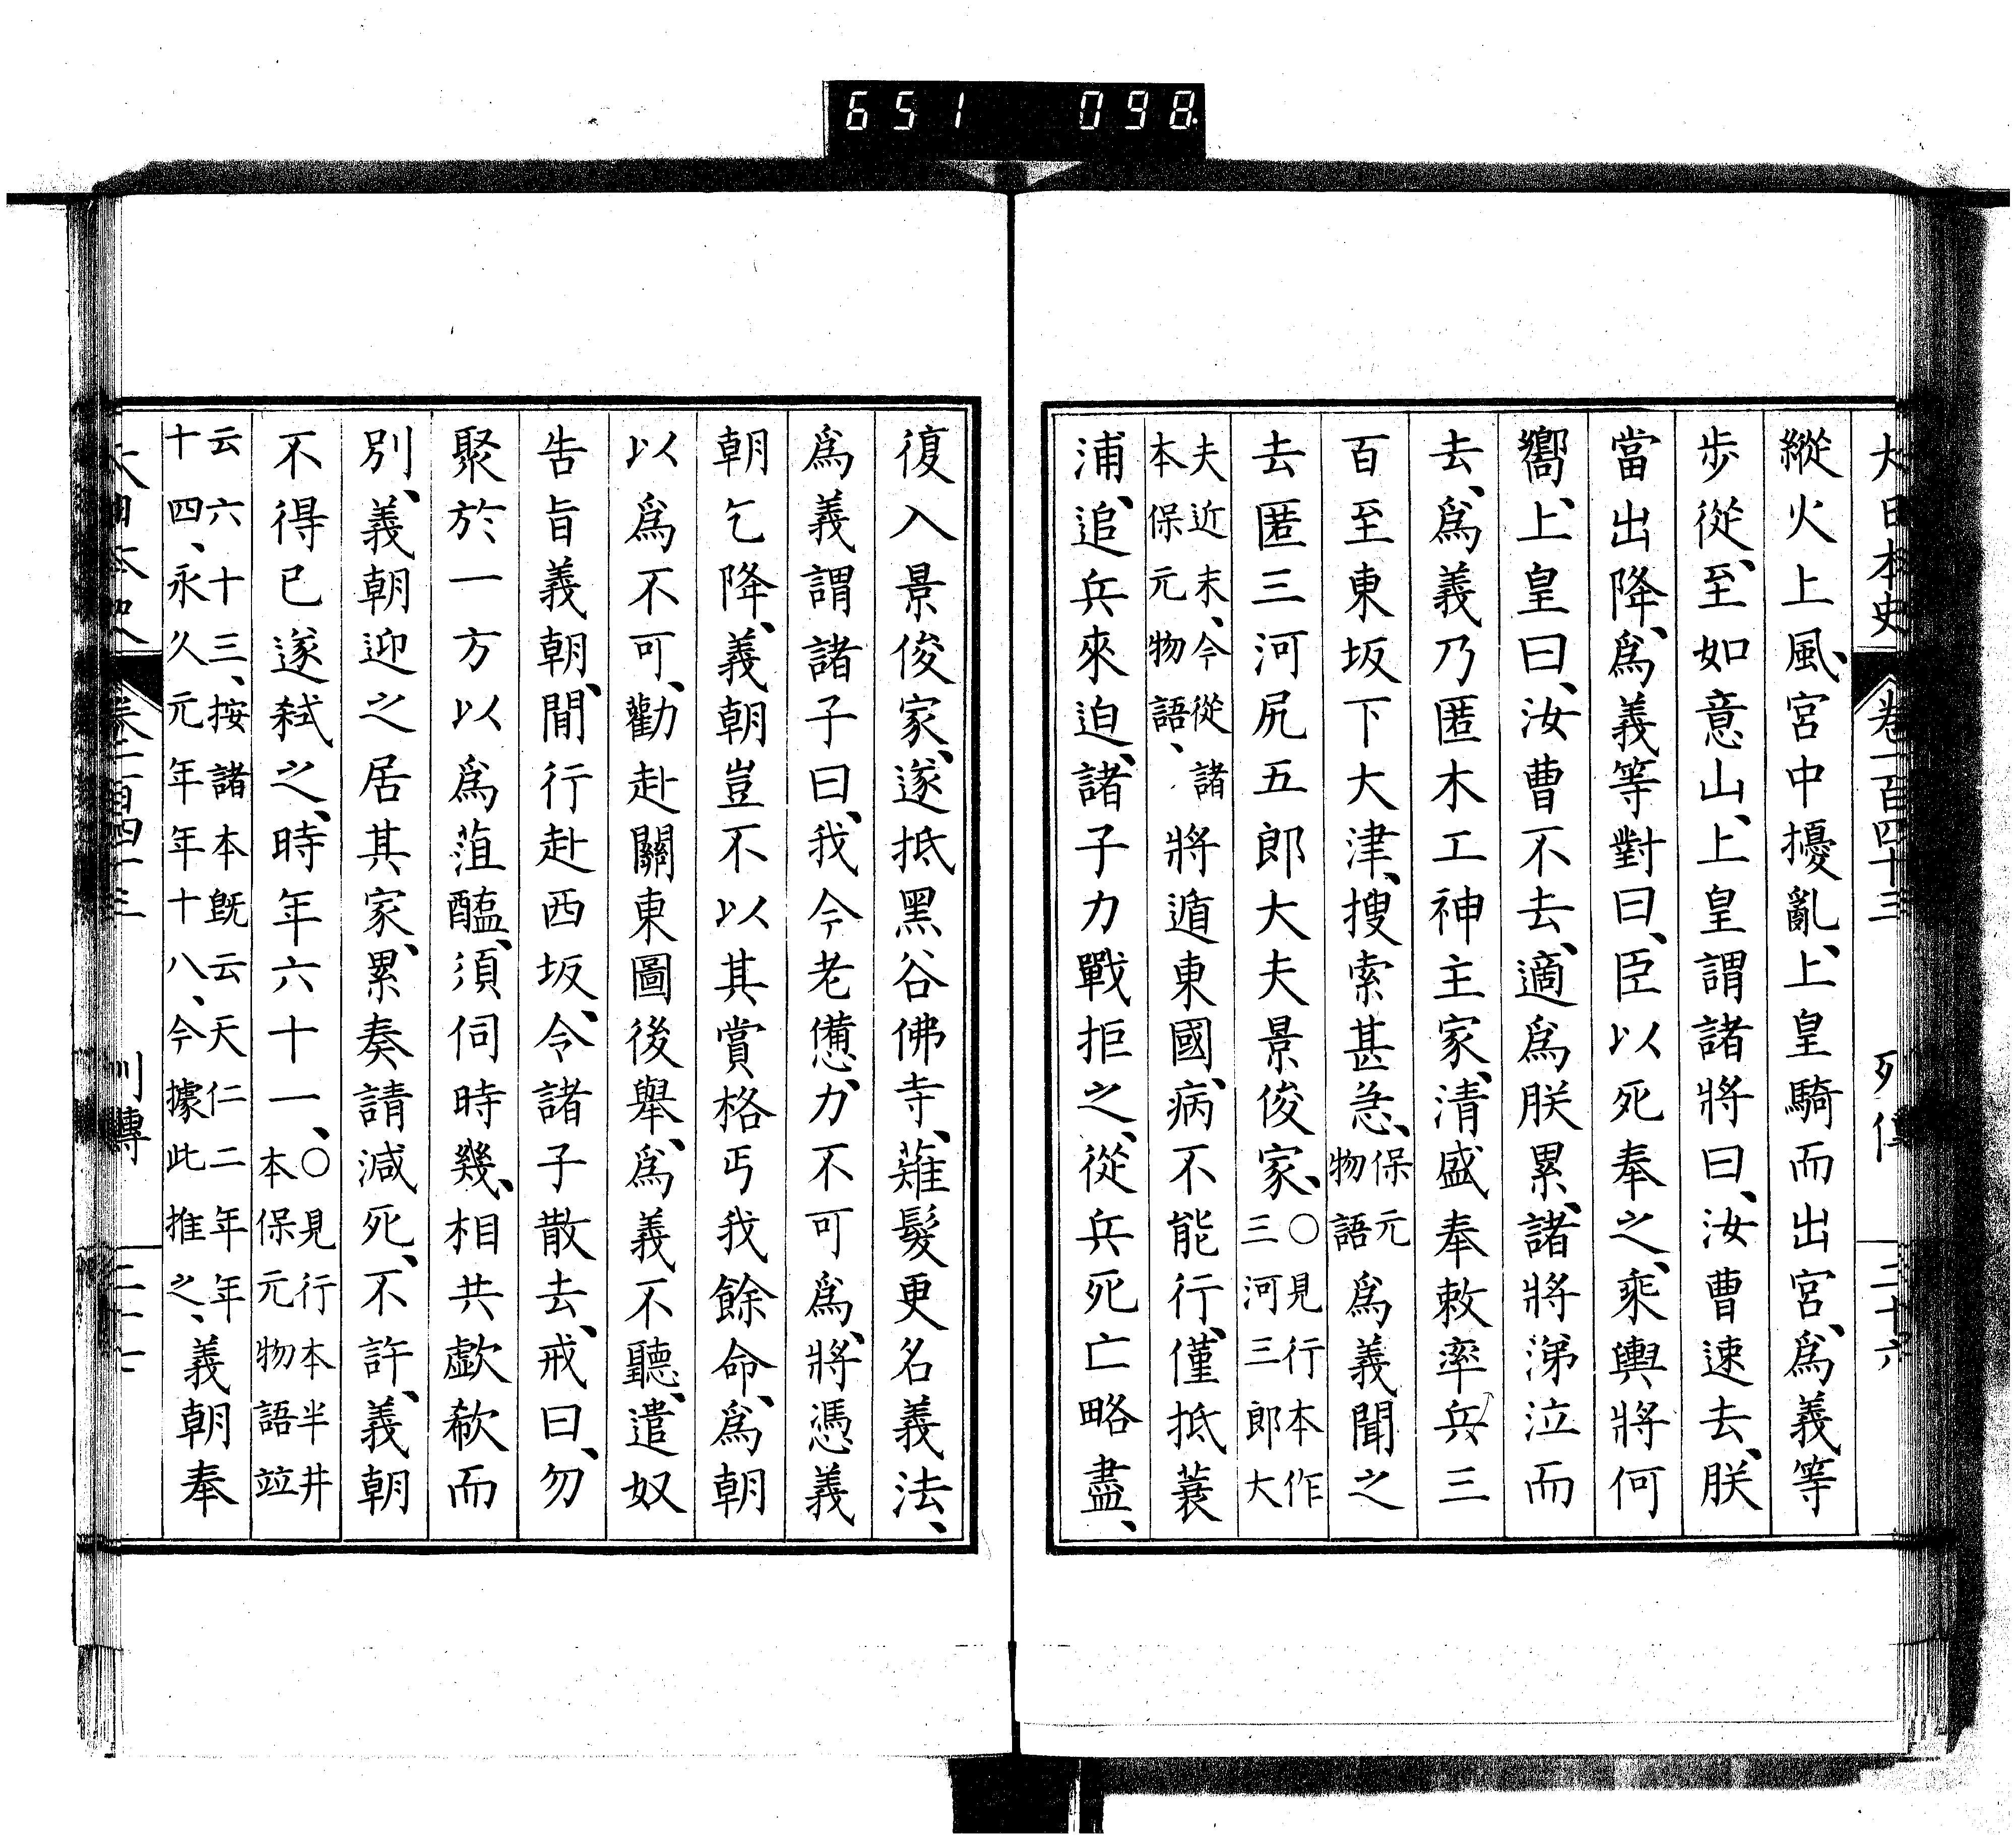 651 098
大日本史 卷一百四十三 列傳 二十六
縱火上風、宮中擾亂、上皇騎而出宮、爲義等
步從、至如意山、上皇謂諸將曰、汝曹速去、朕
當出降、爲義等對曰、臣以死奉之、乘輿將何
嚮、上皇曰、汝曹不去、適爲朕累、諸將涕泣而
去、爲義乃匿木工神主家、淸盛奉敕率兵三
百至東坂下大津、搜索甚急、保元
物語
爲義聞之
去匿三河尻五郎大夫景俊家、○見行本作
三河三郎大
夫近末、今從諸
本保元物語、
將遁東國、病不能行、僅抵蓑
浦、追兵來迫、諸子力戰拒之、從兵死亡略盡、
復入景俊家、遂抵黑谷佛寺、薙髮更名義法、
爲義謂諸子曰、我今老憊、力不可爲、將憑義
朝乞降、義朝豈不以其賞格丐我餘命、爲朝
以爲不可、勸赴關東圖後舉、爲義不聽、遣奴
吿旨義朝、閒行赴西坂、令諸子散去、戒曰、勿
聚於一方以爲菹醢、須伺時幾、相共歔欷而
別、義朝迎之居其家、累奏請減死、不許、義朝
不得已遂弒之、時年六十一、○見行本半井
本保元物語竝
云六十三、按諸本旣云天仁二年年
十四、永久元年年十八、今據此推之、
義朝奉
大日本史 卷一百四十三 列傳